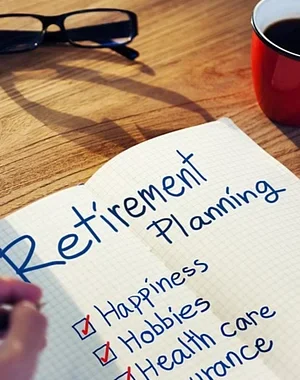 Retirement
Planning
Happiness
Hobbies
Health care